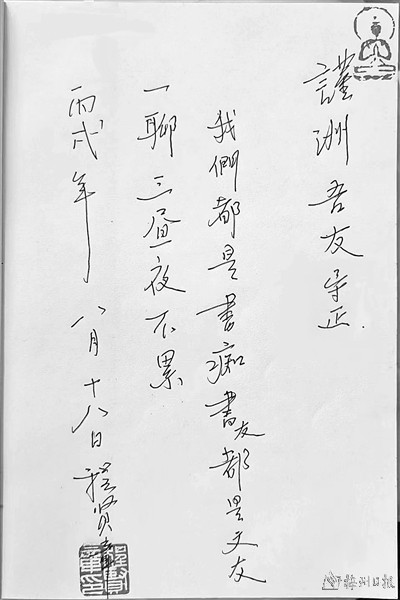 謹洲吾友正.
我們都是書痴書友都是文友
一聊三昼夜不累
丙戌年八月十八日 程贤章
梅州日报